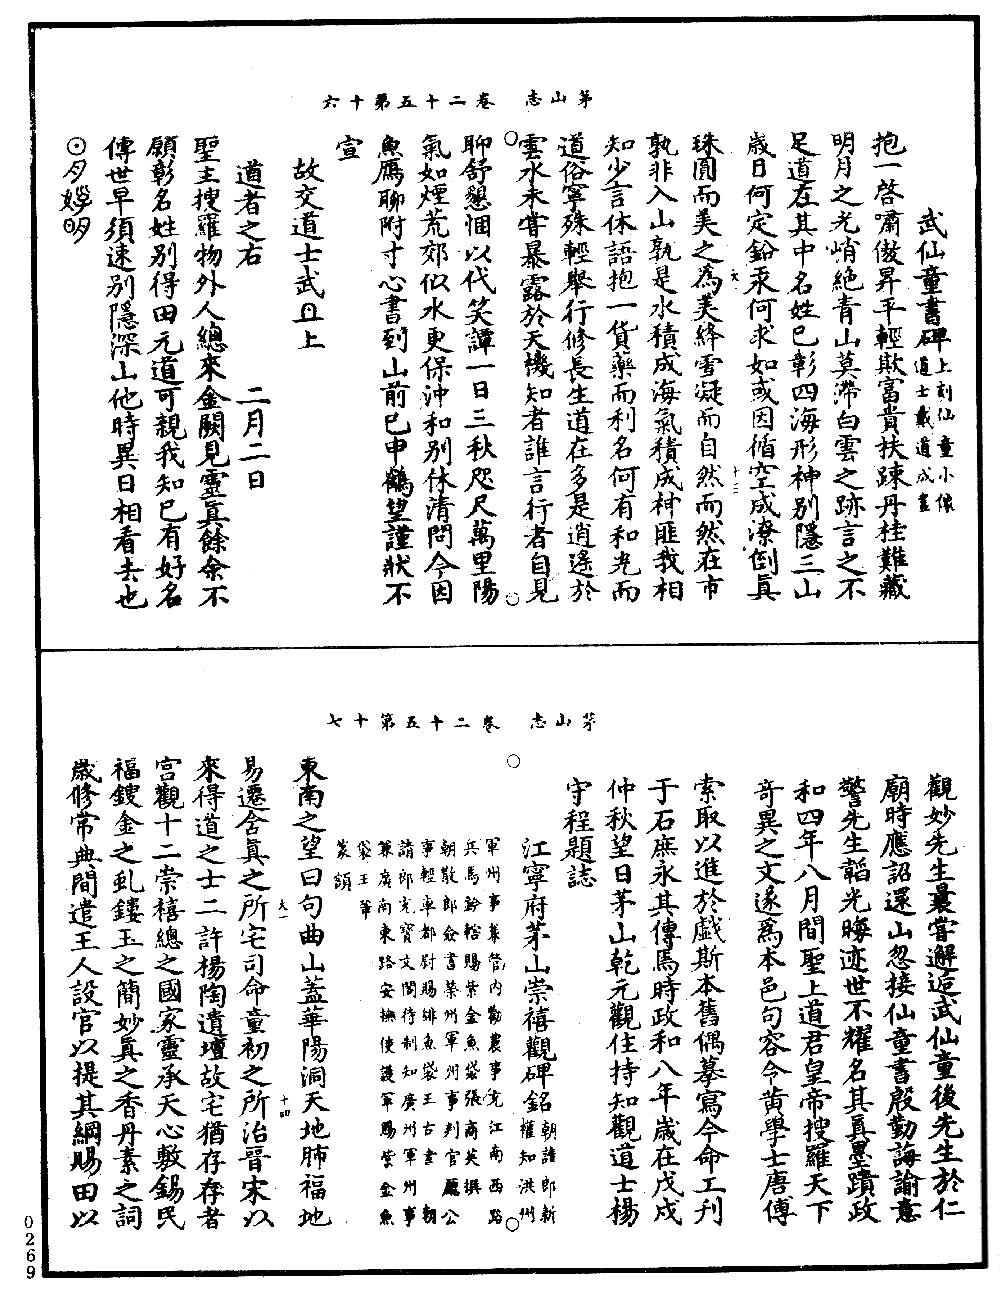 茅山志　卷二十五第十六
武仙童書碑上刻仙童小像道士戴道成畫
抱一啓嘯傲昇平輕欺富貴扶踈丹桂難藏
明月之光峭絶青山莫滯白雲之跡言之不
足道在其中名姓已彰四海形神別隱三山
歲日何定鉛汞何求如或因循空成潦倒真
珠圓而美之為美絳雪凝而自然而然在市
孰非入山孰是水積成海氣積成神匪我相
知少言休語抱一貨藥而利名何有和光而
道俗寧殊輕舉行修長生道在多是逍遙於
雲水未嘗暴露於天機知者誰言行者自見
聊舒懇悃以代笑譚一日三秋咫尺萬里陽
氣如煙荒郊似水更保沖和別休清問今因
魚鴈聊附寸心書到山前已申鶴望謹狀不
宣
故交道士武　上
道者之右　二月二日
聖主搜羅物外人總來金闕見靈真餘余不
願彰名姓別得田元道可親我知已有好名
傳世早須速別隱深山他時異日相看去也
茅山志　卷二十五第十七
觀妙先生曩嘗邂逅武仙童後先生於仁
廟時應詔還山忽接仙童書殷勤誨諭意
警先生韜光晦迹世不耀名其真墨蹟政
和四年八月間聖上道君皇帝搜羅天下
竒異之文遂為本邑句容令黄學士唐傅
索取以進於戲斯本舊偶摹寫今命工刋
于石庶永其傳焉時政和八年歲在戊戌
仲秋望日茅山乾元觀住持知觀道士楊
守程題誌
江寧府茅山崇禧觀碑銘朝請郎新權知洪州
軍州事兼管内勸農事充江南西路
兵馬鈐轄賜紫金魚袋張商英撰
朝散郎僉書榮州軍州事判官廳公
事輕車都尉賜緋魚袋王古書朝
請郎充寳文閣待制知廣州軍州事
兼廣南東路安撫使護軍賜紫金魚
袋王篆
篆額
東南之望曰句曲山蓋華陽洞天地肺福地
易遷含真之所宅司命童初之所治晉宋以
來得道之士二許楊陶遺壇故宅猶存存者
宫觀十二崇禧總之國家靈承天心敷錫民
福鏤金之虬鏤玉之簡妙真之香丹素之詞
歲修常典間遣王人設官以提其綱賜田以
0269